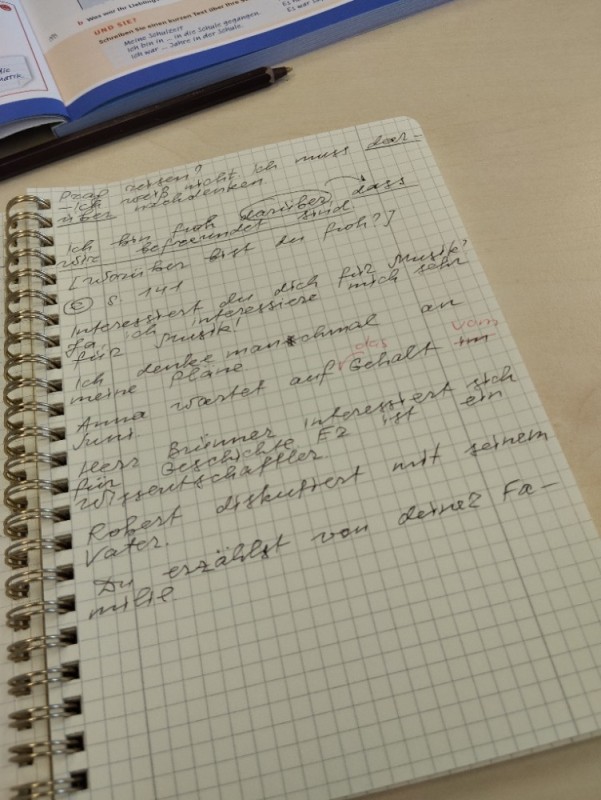 b Was war Ihr Lieblings
UND SIE?
Schreiben Sie einen kurzen Text über Ihre
Meine Schulzeit
Ich bin in ... in die Schule gegangen.
Ich war ... Jahre in der Schule.
Es war
Prag reisen?
- Ich weiß nicht. Ich muss dar-
über nachdenken
Ich bin froh darüber, dass
wir befreundet sind.
[Worüber bist du froh?]
C S. 141
Interessiert du dich für Musik?
Ja, ich interessiere mich sehr
für Musik!
Ich denke manchmal an
meine Pläne
das vom
Anna wartet auf Gehalt im
Juni.
Herr Brünner interessiert sich
für Geschichte. Er ist ein
Wissentschaftler.
Robert diskutiert mit seinem
Vater.
Du erzählst von deiner Fa-
milie